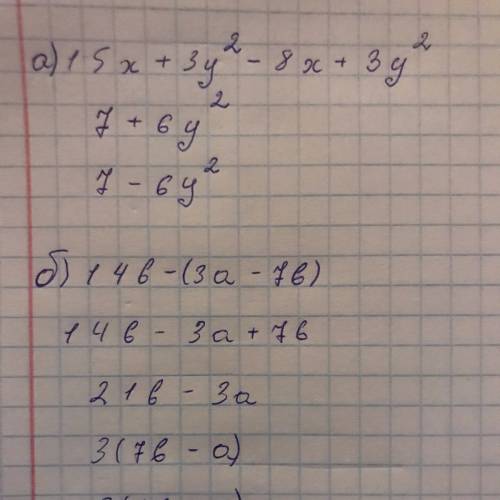 а) 15x + 3y² - 8x + 3y²
7 + 6y²
7 - 6y²
б) 14в - (3а - 7в)
14в - 3а + 7в
21в - 3а
3(7в - а)